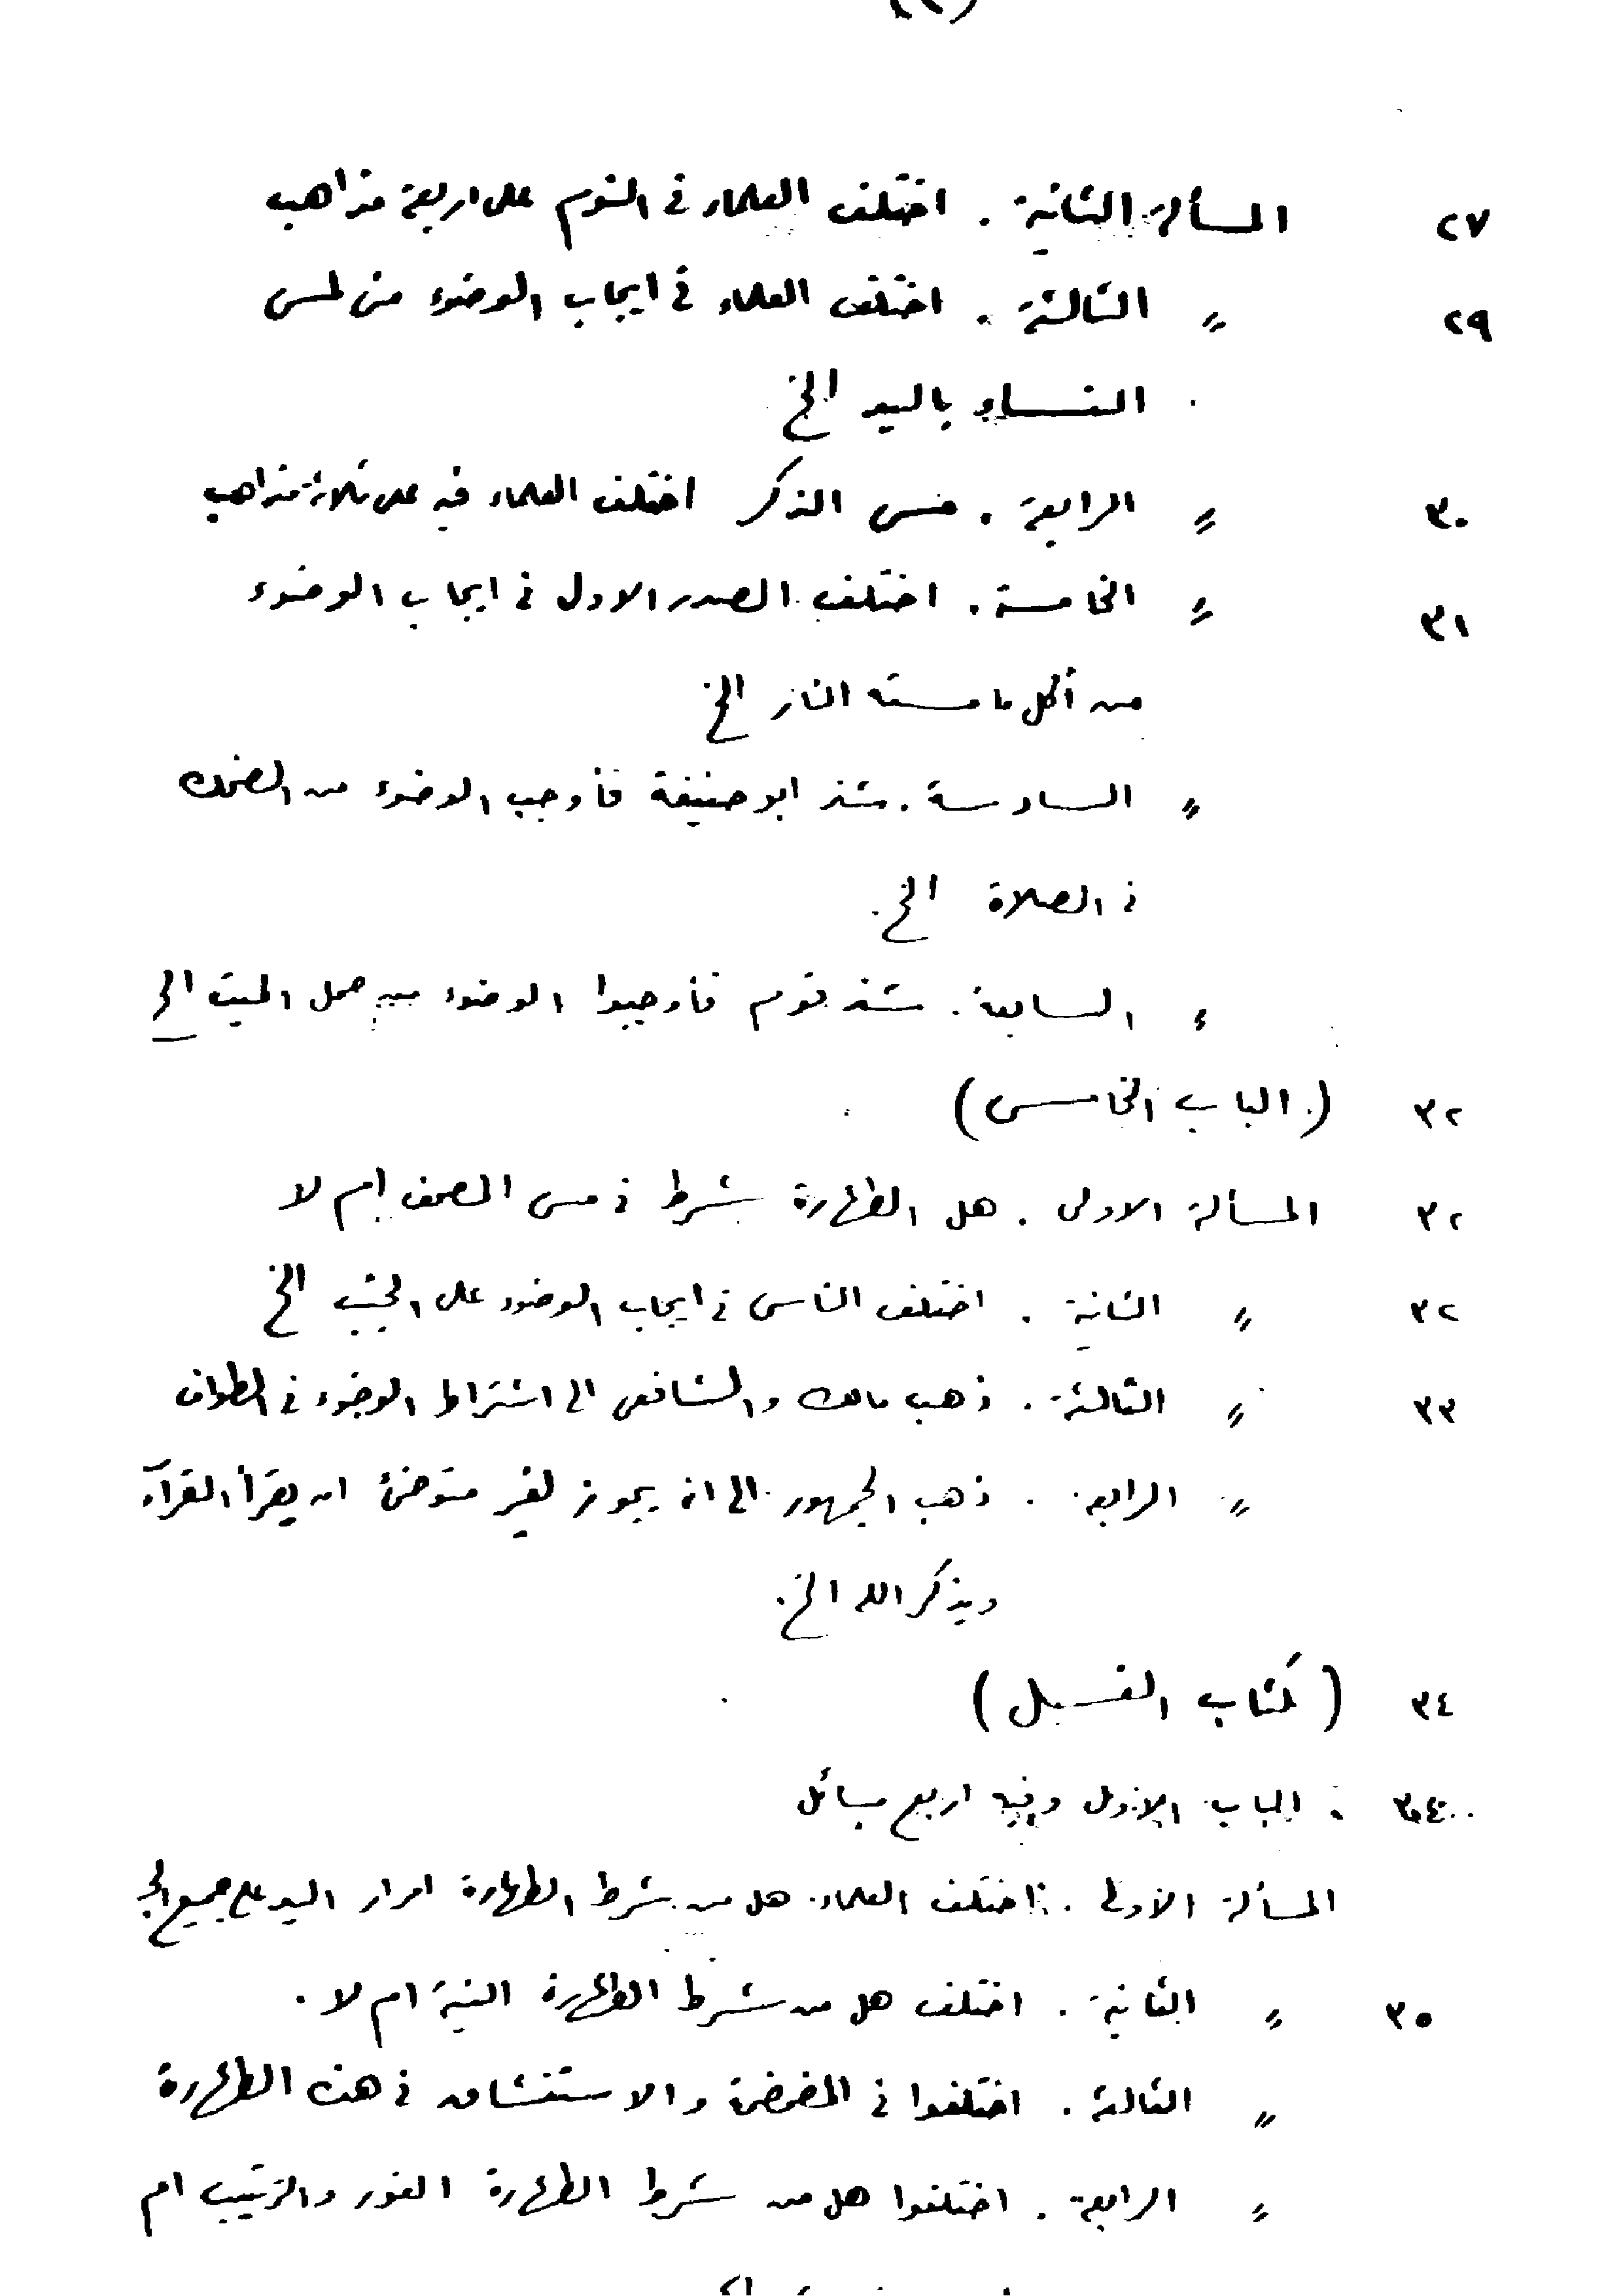 ٢٧ المسألة الثانية . اختلف العلماء فى النوم على اربعة مذاهب
٢٩ 〃 الثالثة . اختلف العلماء فى ايجاب الوضوء من لمس
النساء باليد الخ
٣٠ 〃 الرابعة . مس الذكر اختلف العلماء فيه على ثلاثة مذاهب
٣١ 〃 الخامسة . اختلف الصدر الاول فى ايجاب الوضوء
من أكل ما مسته النار الخ
〃 السادسة . شذ ابو حنيفة فأوجب الوضوء من الضحك
فى الصلاة الخ .
〃 السابعة . شذ قوم فأوجبوا الوضوء من حمل الميت الخ
٣٢ ( الباب الخامس )
٣٢ المسألة الاولى . هل الطهارة شرط فى مس المصحف ام لا
٣٢ 〃 الثانية . اختلف الناس فى ايجاب الوضوء على الجنب الخ
٣٣ 〃 الثالثة . ذهب مالك والشافعى الى اشتراط الوضوء فى الطواف
〃 الرابعة . ذهب الجمهور الى انه يجوز لغير متوضئ ان يقرأ القرآن
ويذكر الله الخ .
٣٤ ( كتاب الغسل )
٣٤ . الباب الاول وفيه اربع مسائل
المسألة الاولى . اختلف العلماء هل من شرط الطهارة امرار اليد على جميع
٣٥ 〃 الثانية . اختلف هل من شرط الطهارة النية ام لا .
〃 الثالثة . اختلفوا فى المضمضة والاستنشاق فى هذه الطهارة
〃 الرابعة . اختلفوا هل من شرط الطهارة الفور والترتيب ام